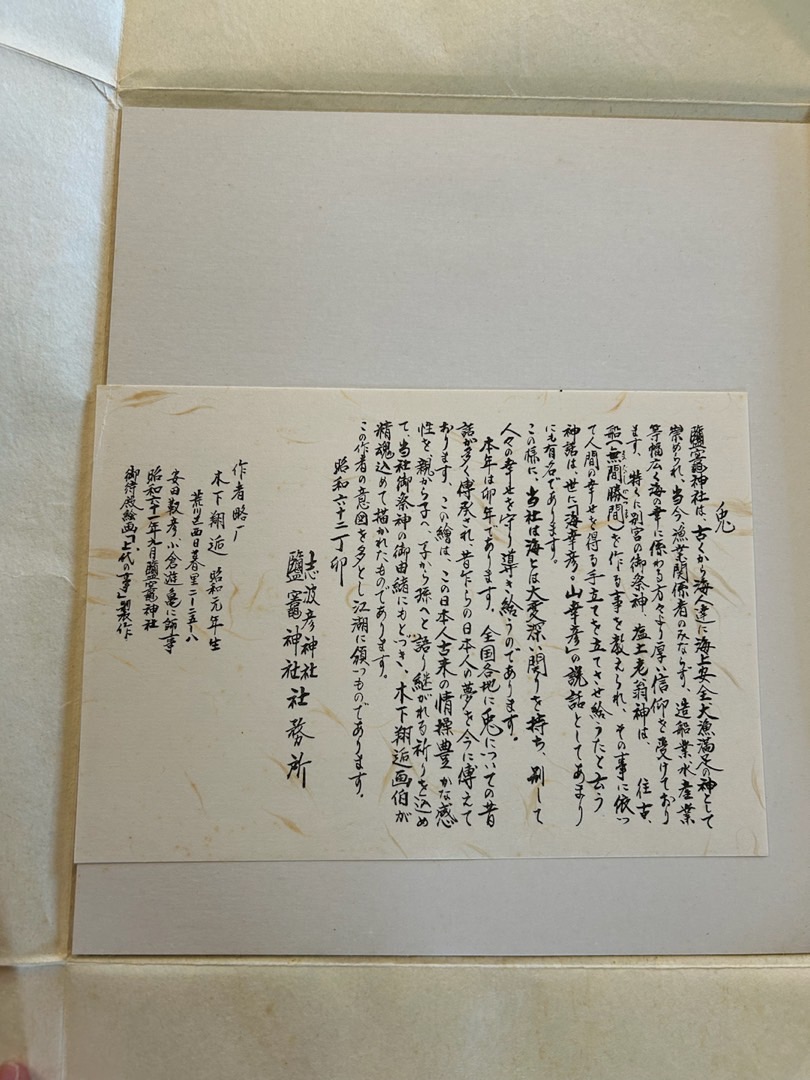 兎
鹽竈神社は、古くから海人達に海上安全大漁満足の神として
崇められ、当今、漁業関係者のみならず、造船業水産業
等幅広く海の幸に係わる方々より厚い信仰を受けており
ます。特くに別宮の御祭神 塩土老翁神は、 往古、
船(無間勝間)を作る事を教えられ、その事に依っ
て人間の幸せを得る手立てを立てさせ給うたと云う
神話は、世に「海幸彦・山幸彦」の説話としてあまり
にも有名であります。
この様に、当社は海とは大変深い関りを持ち、別して
人々の幸せを守り導き給うのであります。
本年は卯年であります。全国各地に兎についての昔
話が多く傳承され、昔乍らの日本人の夢を今に傳えて
おります。この繪は、この日本人古来の情操豊かな感
性を、親から子へ、子から孫へと語り継がれる祈りを込め
て、当社御祭神の御由緒にもとづき、木下翔逅画伯が
精魂込めて描かれたものであります。
この作者の意図を多とし江湖に頒つものであります。
昭和六十二丁卯
志波彦神社
鹽竈神社 社務所
作者略歴
木下翔逅 昭和元年生
荒川区西日暮里二ー五ー八
安田靫彦、小倉遊亀に師事
昭和六十一年九月鹽竈神社
御待殿絵画「上代の事」製作